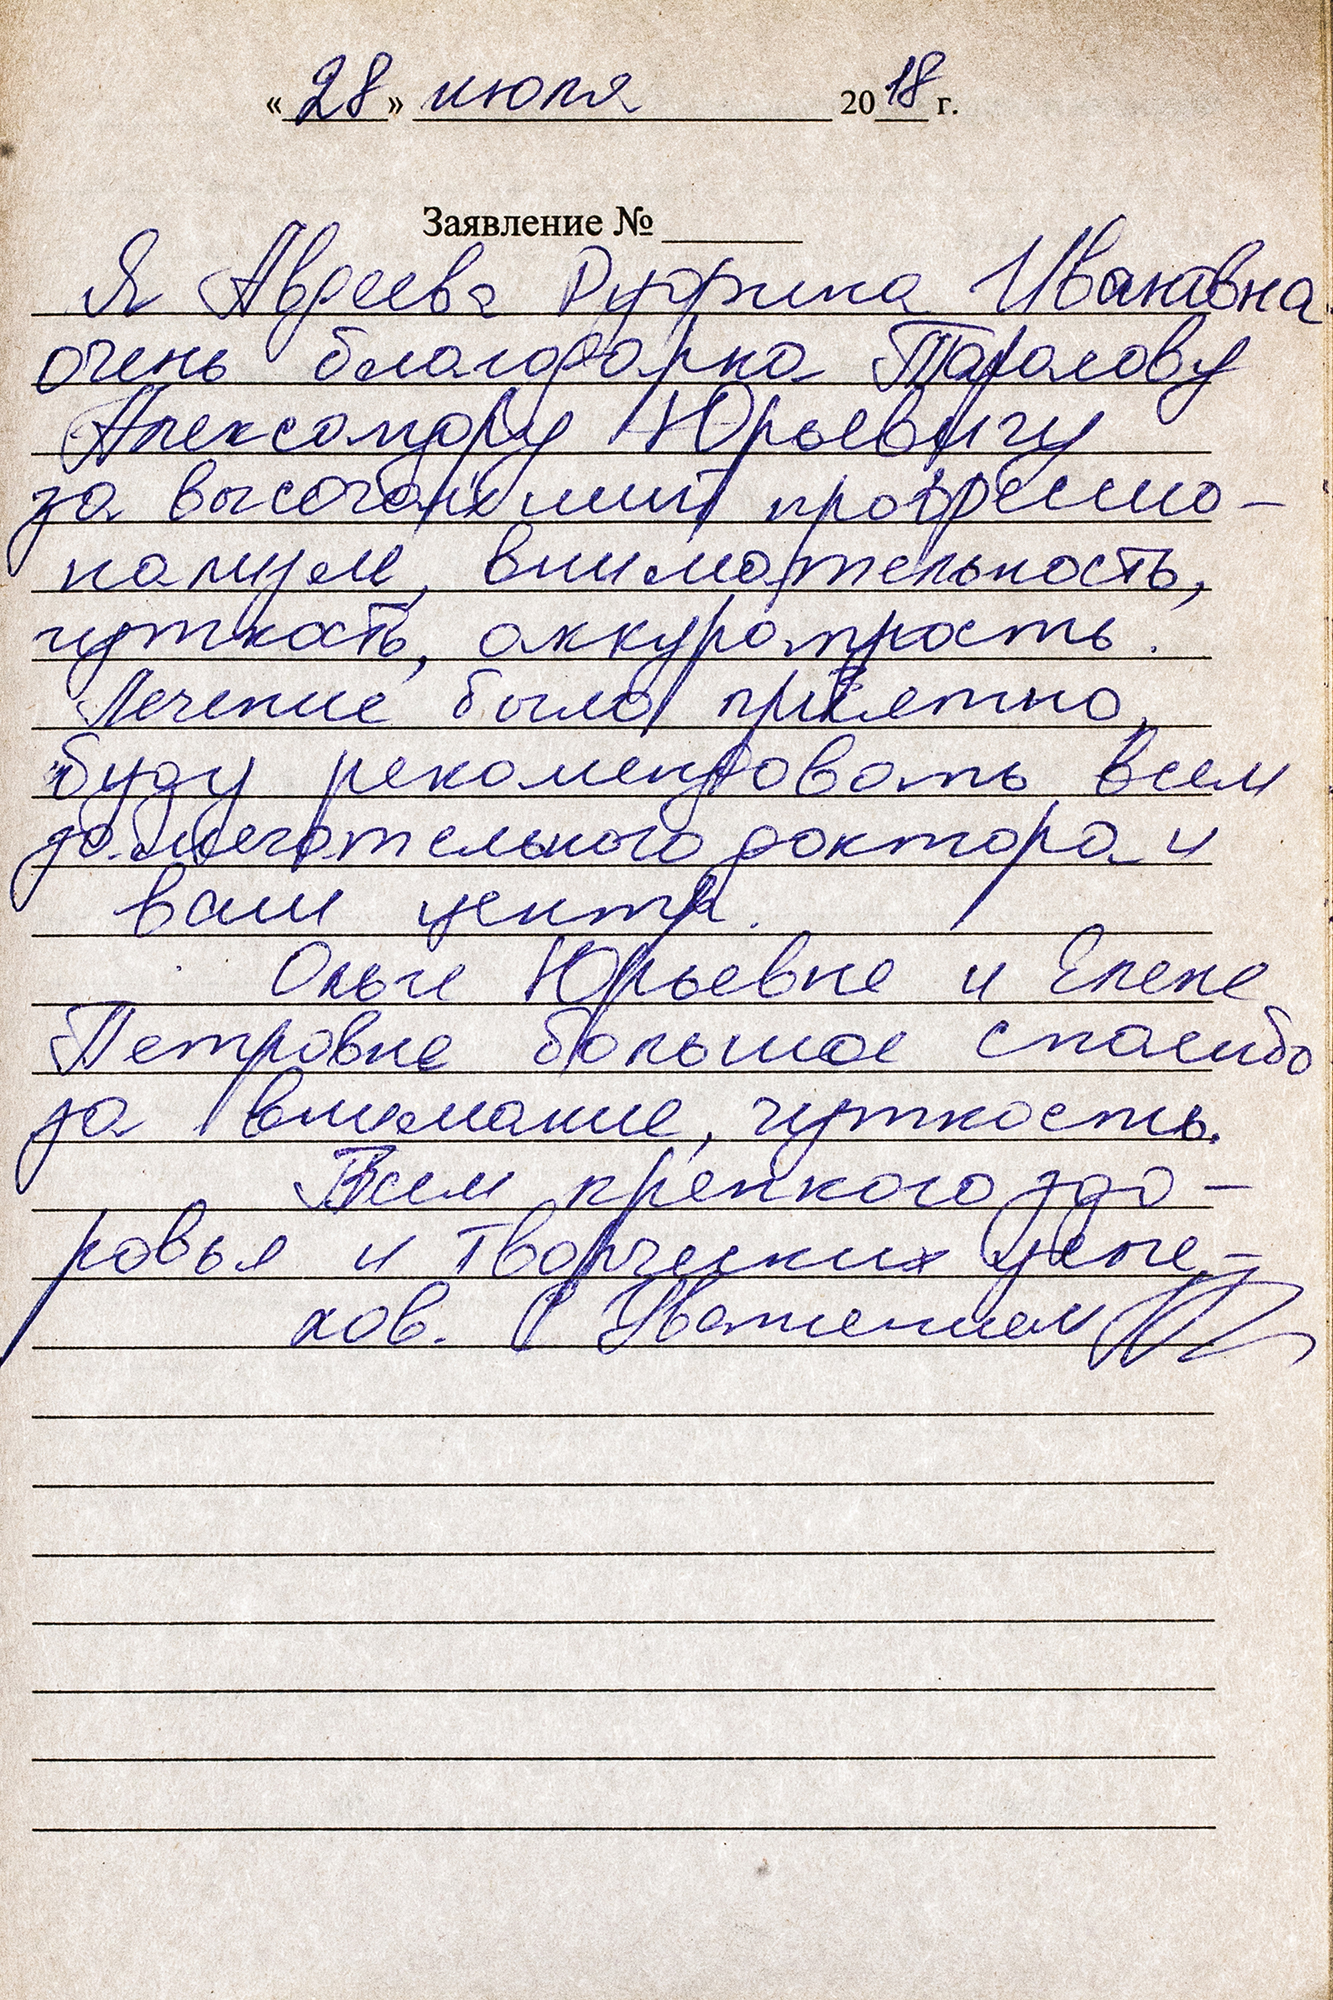 «28» июля 2018 г.
Заявление №
Я Авдеева Руфина Ивановна
очень благодарна Таралову
Александру Юрьевичу
за высочайший профессио-
нализм, внимательность,
чуткость, аккуратность.
Лечение было приятно,
буду рекомендовать всем
замечательного доктора и
ваш центр.
Ольге Юрьевне и Елене
Петровне большое спасибо
за внимание, чуткость.
Всем крепкого здо-
ровья и творческих успе-
хов. С Уважением